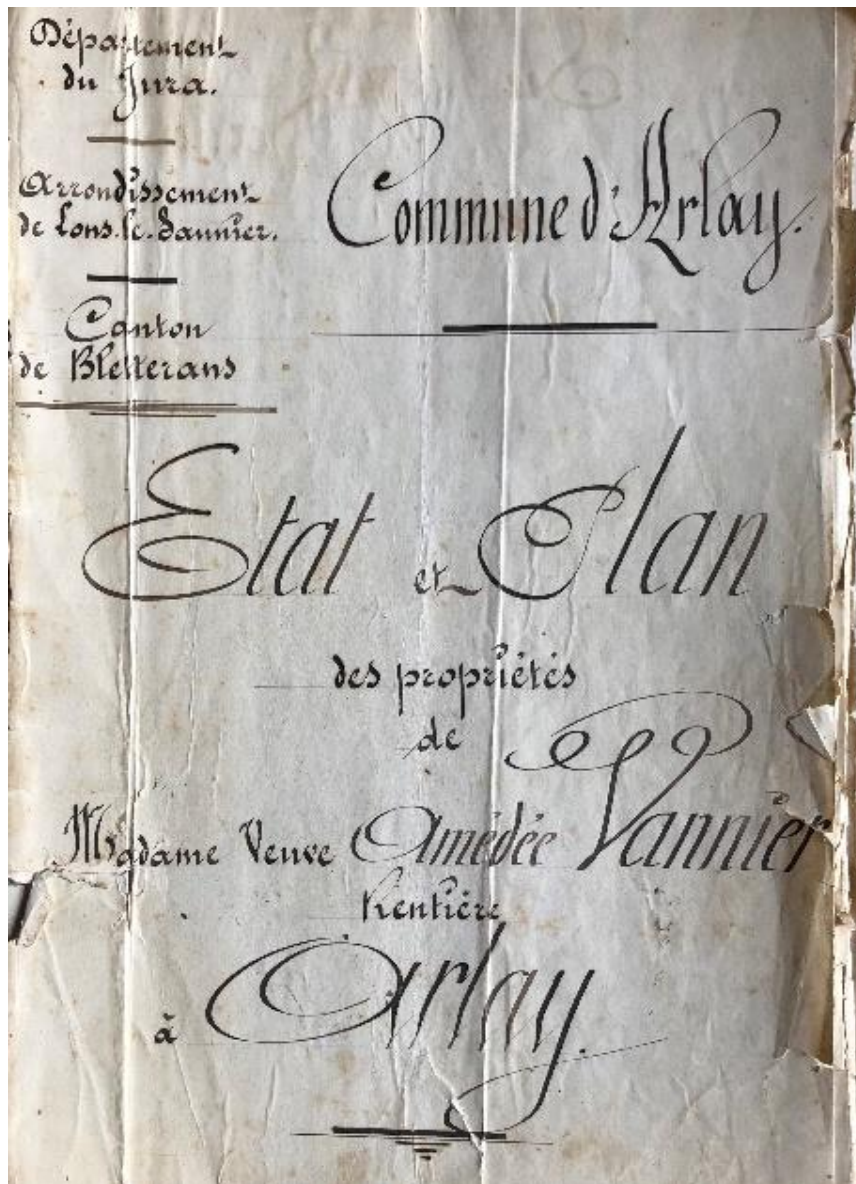 Département
du Jura.
Arrondissement
de Lons-le-Saunier.
Canton
de Bletterans
Commune d'Arlay.
Etat et Plan
des propriétés
de
Madame Veuve Amédée Vannier
Rentière
à Arlay.